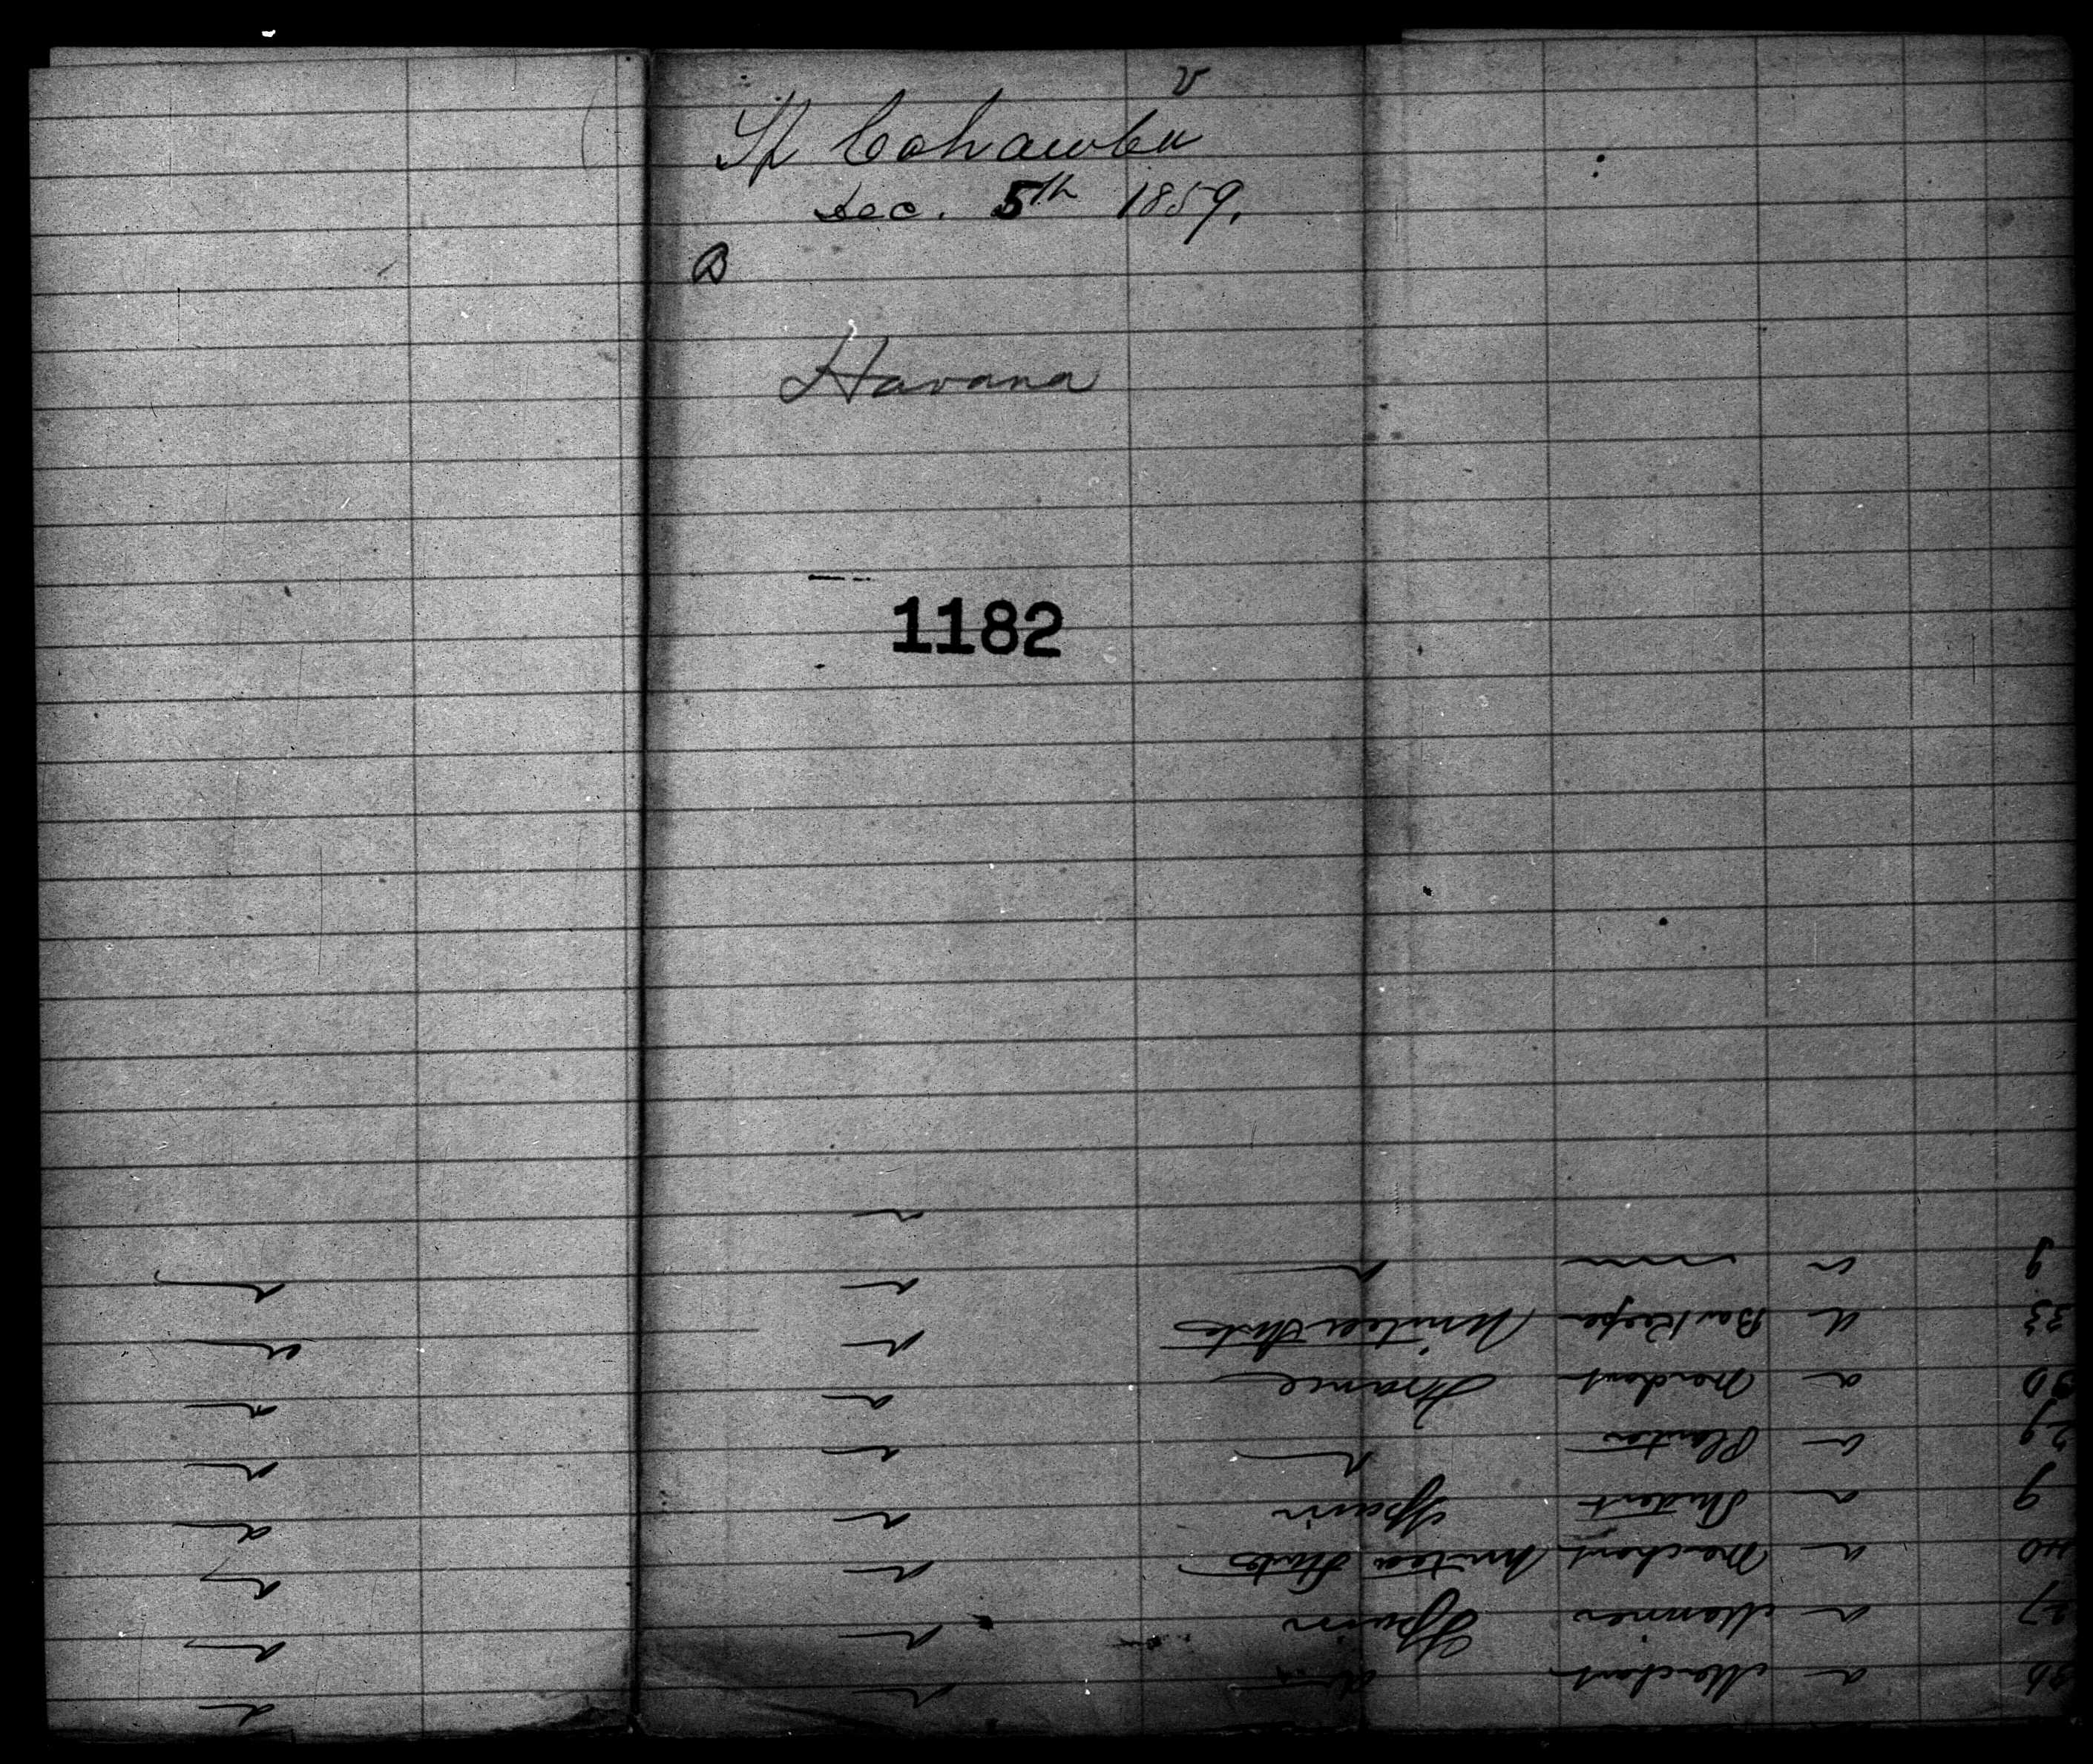 v
St Cahawba
Dec. 5th 1859.
B
Havana
1182
36 a Merchant
27 a Mariner Spain
40 a Merchant United States
9 a Student Spain
29 a Planter "
30 a Merchant France
33 a Bar Keeper United States
9